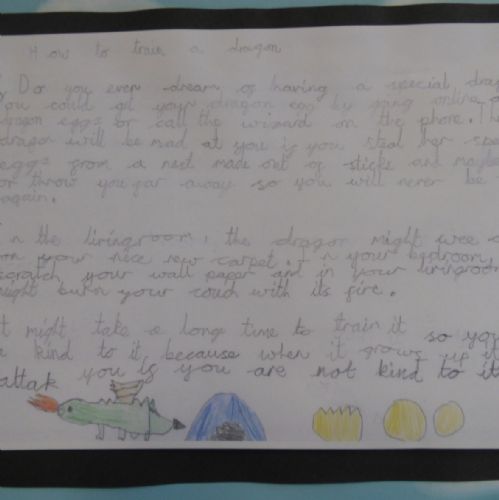 How to train a dragon
Do you ever dream of having a special
You could get your dragon egg by going online
dragon eggs or call the wizard on the phone.
dragon will be mad at you if you steal her
eggs from a nest made out of sticks and
or throw you far away so you will never be
again.
In the livingroom, the dragon might wee
on your nice new carpet. In your bedroom
scratch your wall paper and in your
might burn your couch with its fire.
It might take a long time to train it so
be kind to it because when it grows up it
attak you if you are not kind to it